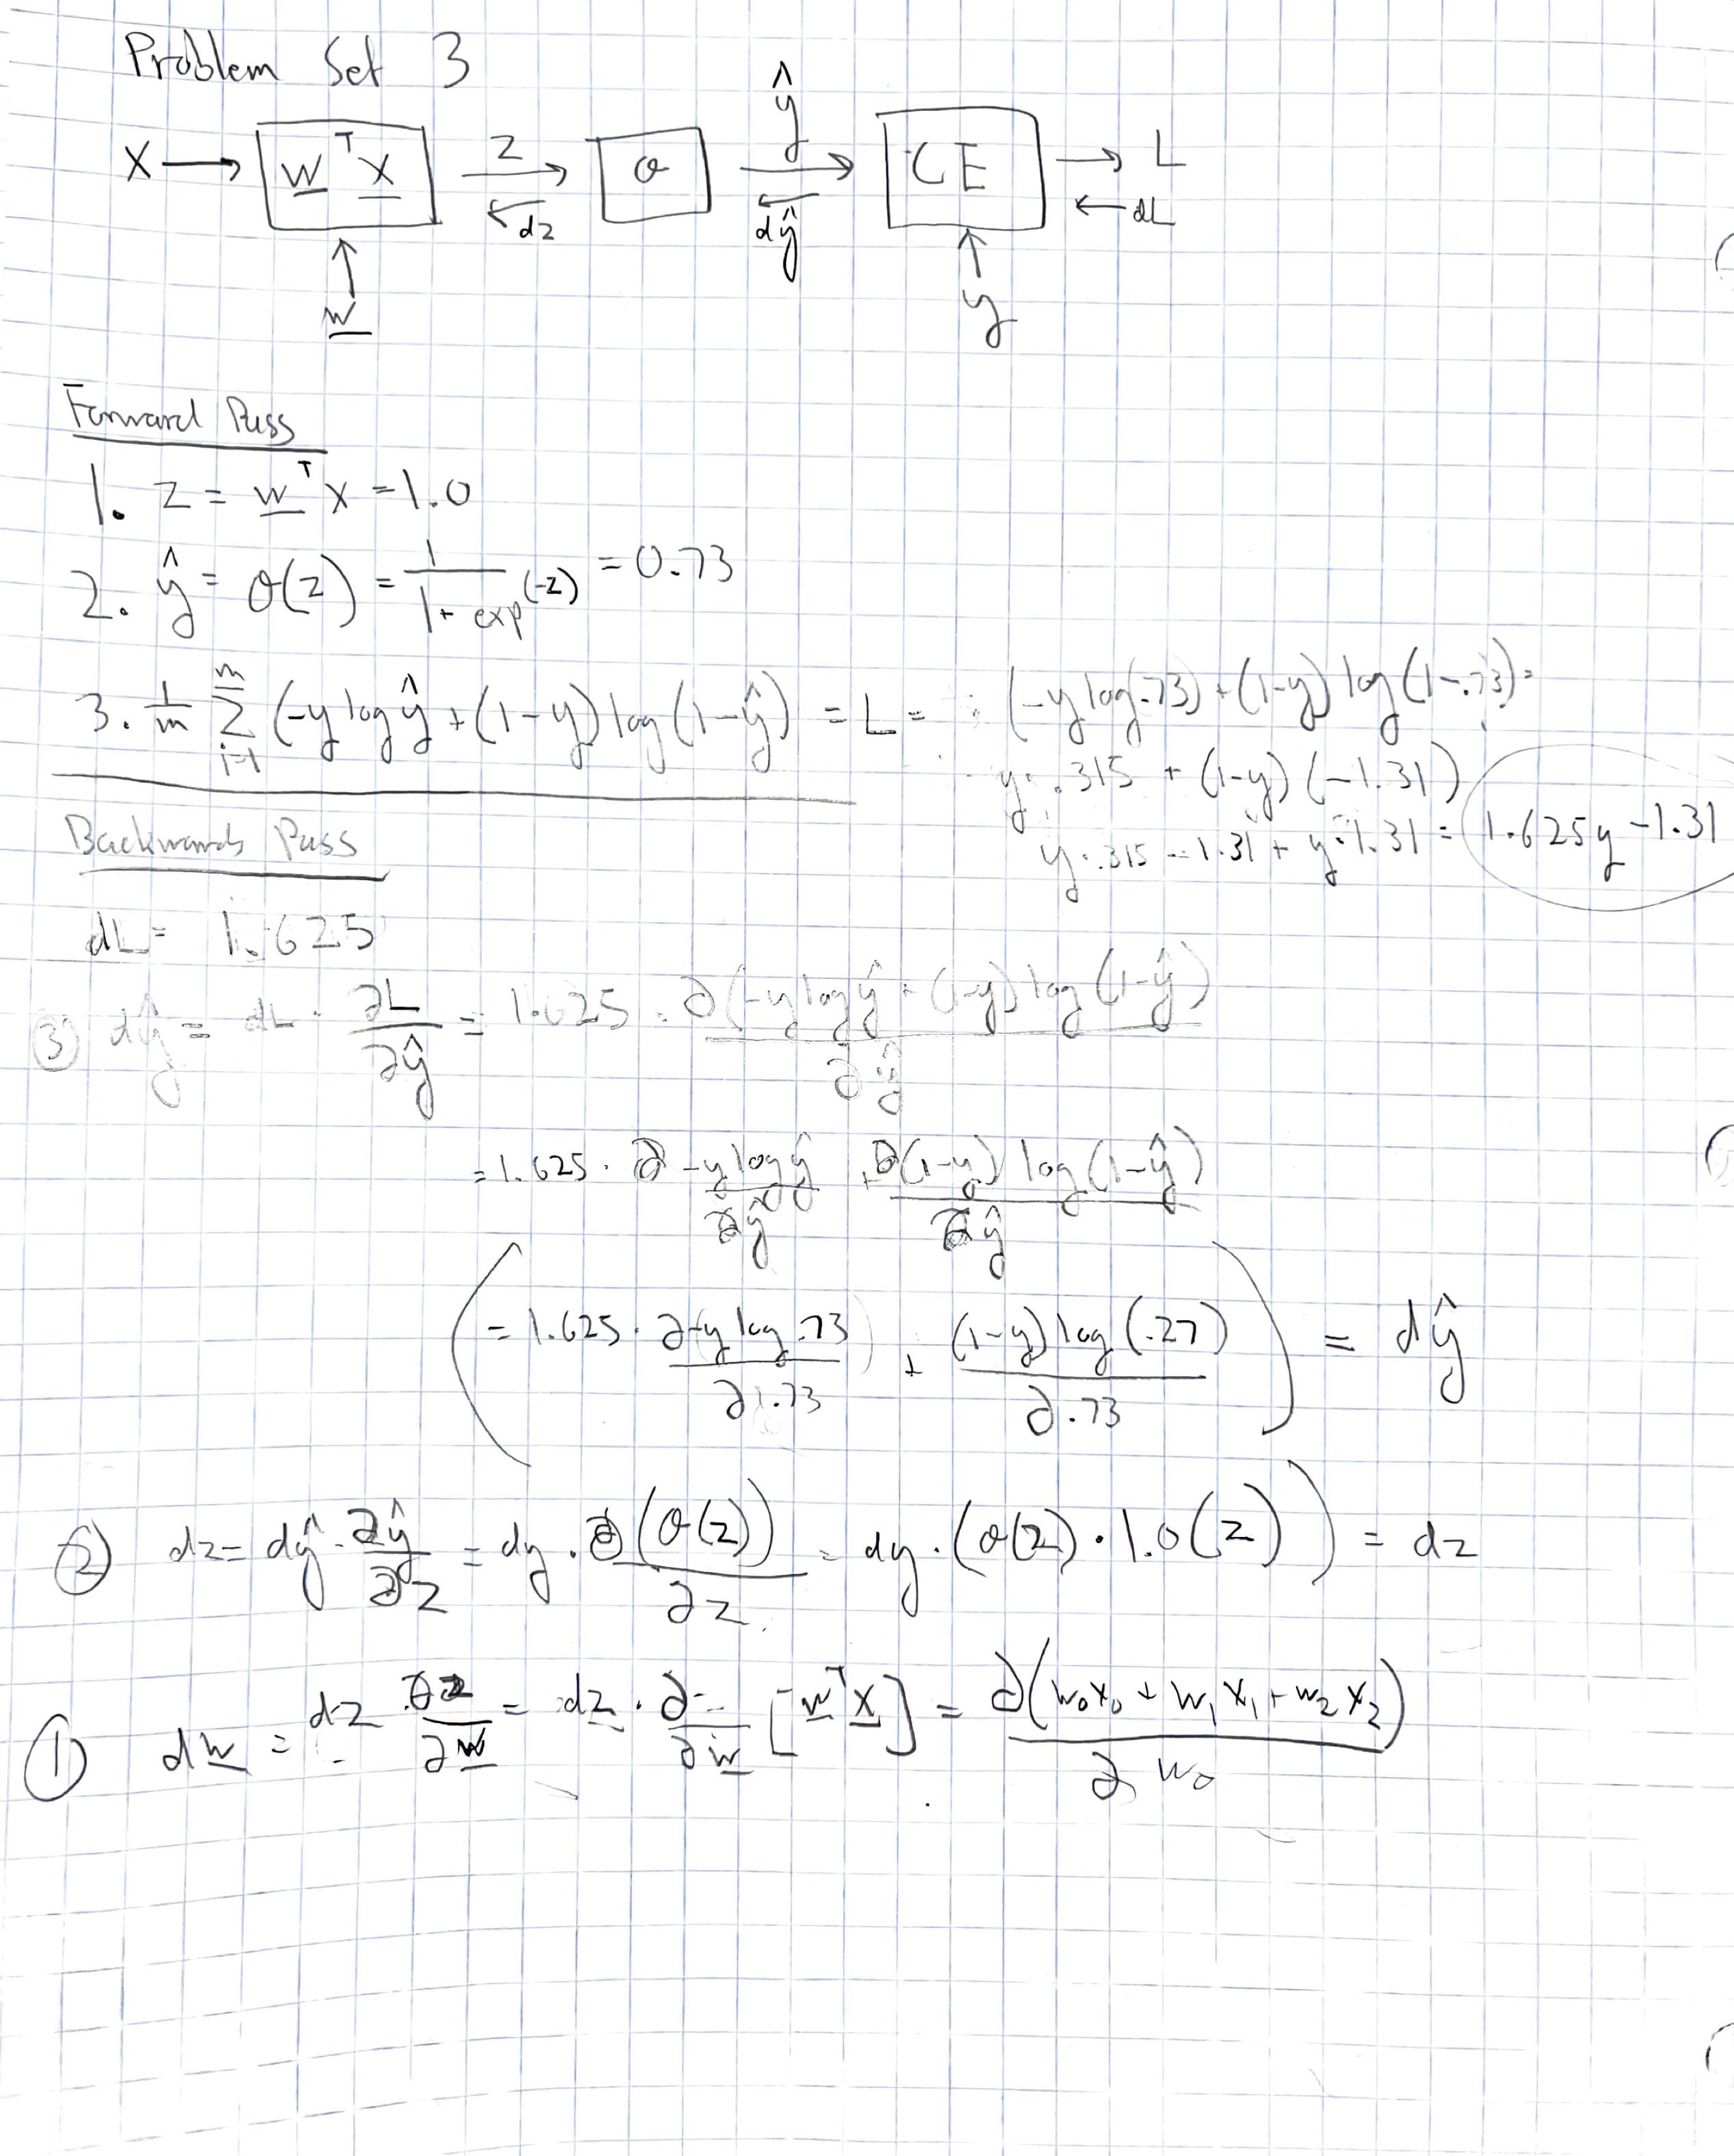 Problem Set 3
X → w^T x  z →  σ  ŷ →  CE  → L
← dz  ← dŷ  ← dL
w  y
Forward Pass
1. z = w^T x = 1.0
2. ŷ = σ(z) = 1 / (1 + exp^(-z)) = 0.73
3. 1/m Σ_{i=1}^{m} (-y log ŷ + (1-y) log (1-ŷ) = L = (-y log(.73) + (1-y) log (1-.73) =
y · .315 + (1-y) (-1.31)
y · .315 - 1.31 + y · 1.31 = 1.625y - 1.31
Backwards Pass
dL = 1.625
③ dŷ = dL · ∂L/∂ŷ = 1.625 · ∂(-y log ŷ + (1-y) log (1-ŷ) / ∂ŷ
= 1.625 · ∂ -y log ŷ / ∂ŷ + ∂(1-y) log (1-ŷ) / ∂ŷ
( = 1.625 · ∂ -y log .73 / ∂ .73 + (1-y) log (.27) / ∂ .73 ) = dŷ
② dz = dŷ · ∂ŷ/∂z = dy · ∂(σ(z)) / ∂z = dy · (σ(z) · 1.0(z)) = dz
① dw = dz · ∂z/∂w = dz · ∂/∂w [w^T x] = ∂(w₀x₀ + w₁x₁ + w₂x₂) / ∂w₀